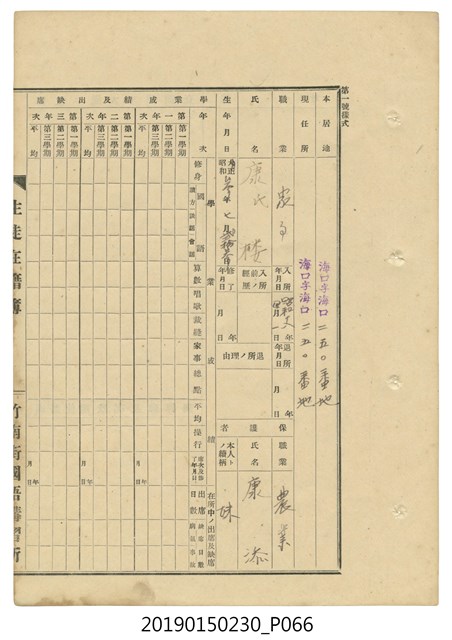 第一號樣式
本居地
海口字海口二五〇番地
現住所
海口字海口二五〇番地
職業
農
入所年月日
退所年月日
職業
農業
氏名
康氏
入所前ノ經歷
退所ノ理由
保護者
氏名
康添
生年月日
大正
昭和
年
月
日
修了
年
月
日
本人トノ續柄
妹
學業成績及出缺席
年次
學業成績
修身
國語
算數
唱歌
裁縫
家事
總點
平均
操行
在所中ノ出席及缺席
出席日數
第一學期
第二學期
第三學期
平均
第一學期
第二學期
第三學期
平均
第一學期
第二學期
第三學期
平均
生徒在籍簿
竹南街國語講習所
20190150230_P066